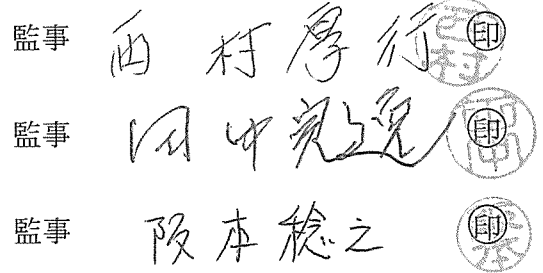 監事 西村厚行 ㊞
監事 田中 ㊞
監事 阪本稔之 ㊞